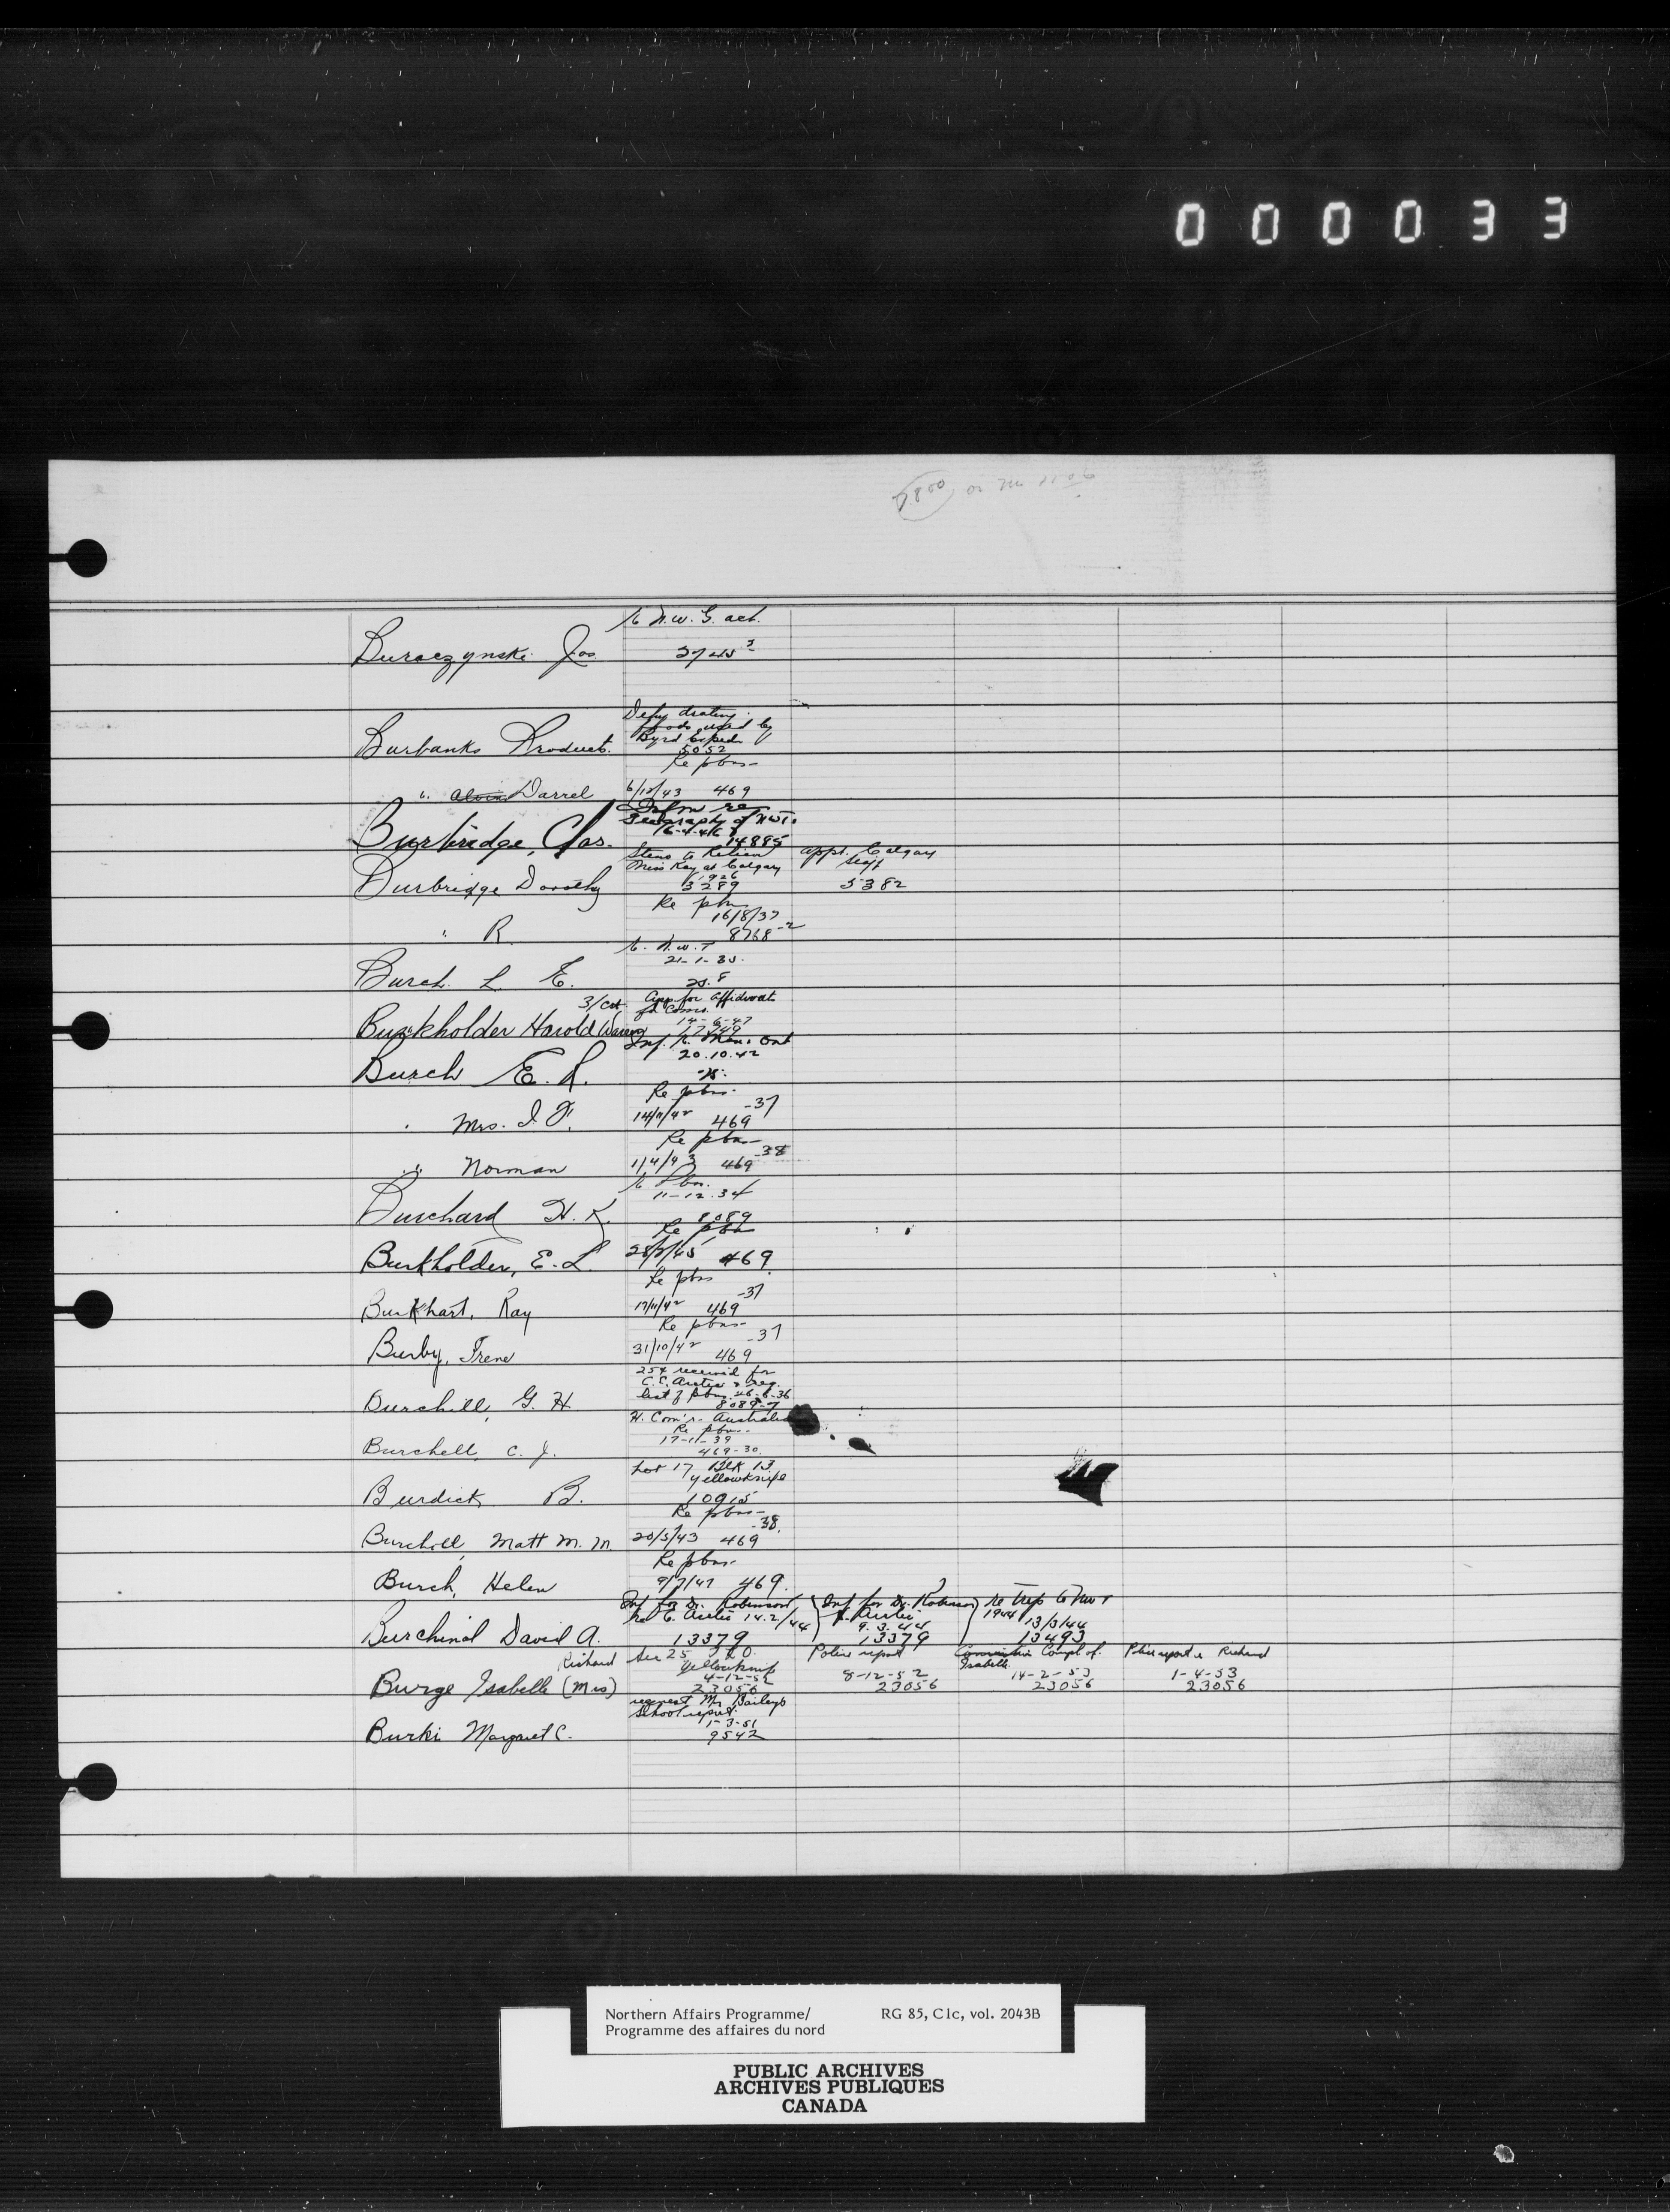 000033
Buraczynski Jos
N.W.G. act.
Burbanks Product.
foods used by
Byrd Exped.
5052
Re pbns
" Alvin Darrel
6/12/43 469
Burbridge, Chas.
Inform re
Geography of NWT.
16-4-46
14885
Burbridge Dorothy
Steno to
Miss Kay at Calgary
1926
3289
appt. Calgary
Staff
5382
" R.
Re pbns
16/8/37
8768-2
Burch. L E.
N.W.T
21-1-35.
Burkholder Harold
App. for affidavit
14-6-47
17749
Burch E. R.
20.10.42
" Mrs. I F.
Re pbns
14/11/42 469-37
" Norman
Re pbns
1/4/43 469-38
Burchard H. K.
11-12-34
8089
Burkholder, E. L.
Re pbn
469
Burkhart, Ray
Re pbns
17/11/42 469-37
Burby, Irene
Re pbns
31/10/42 469-37
Burchill, G. H.
25¢ received for
C.C. Arctic & req.
list of pbns. 26-6-36
8089-7
Burchell, C. J.
H. Com'r. Australia
Re pbns.
17-11-39
469-30.
Burdick B.
Lot 17 Blk 13
Yellowknife
10915
Burchill, Matt M. M.
Re pbns
20/5/43 469-38.
Burch, Helen
Re pbns.
9/7/47 469.
Burchinal David A.
Inf for Dr. Robinson,
re C. Arctic 14.2/44
13379
Inf for Dr. Robinson
Arctic
9.3.44
13379
re trip to NWT
1944 13/3/44
13493
Richard
Burge Isabelle (Mrs)
Sec 25
Yellowknife
4-12-52
23056
Police report
8-12-52
23056
Compl of.
Isabelle
14-2-53
23056
Police report re Richard
1-4-53
23056
Burki Margaret C.
request Mr Bailey's
School report.
1-3-51
9542
Northern Affairs Programme/ RG 85, C1c, vol. 2043B
Programme des affaires du nord
PUBLIC ARCHIVES
ARCHIVES PUBLIQUES
CANADA